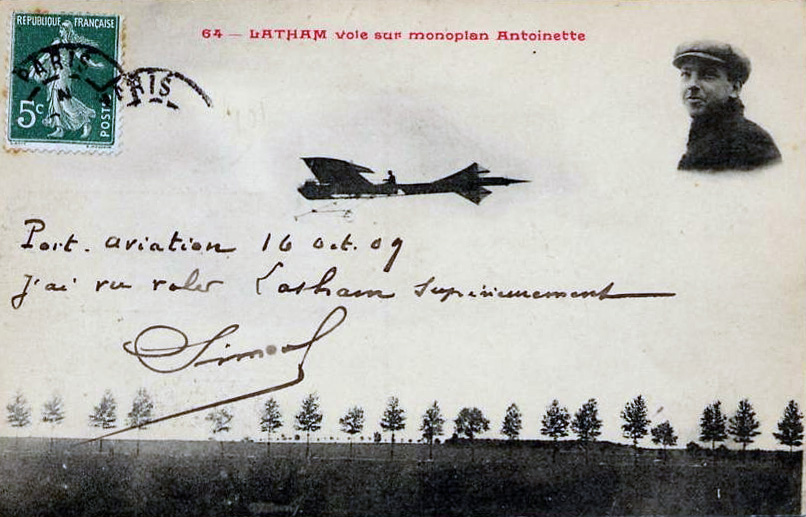 64 — LATHAM vole sur monoplan Antoinette
REPUBLIQUE FRANÇAISE
5c
POSTES
PARIS
PARIS
Port. aviation 16 oct. 09
J'ai vu voler Latham supérieurement
Simon